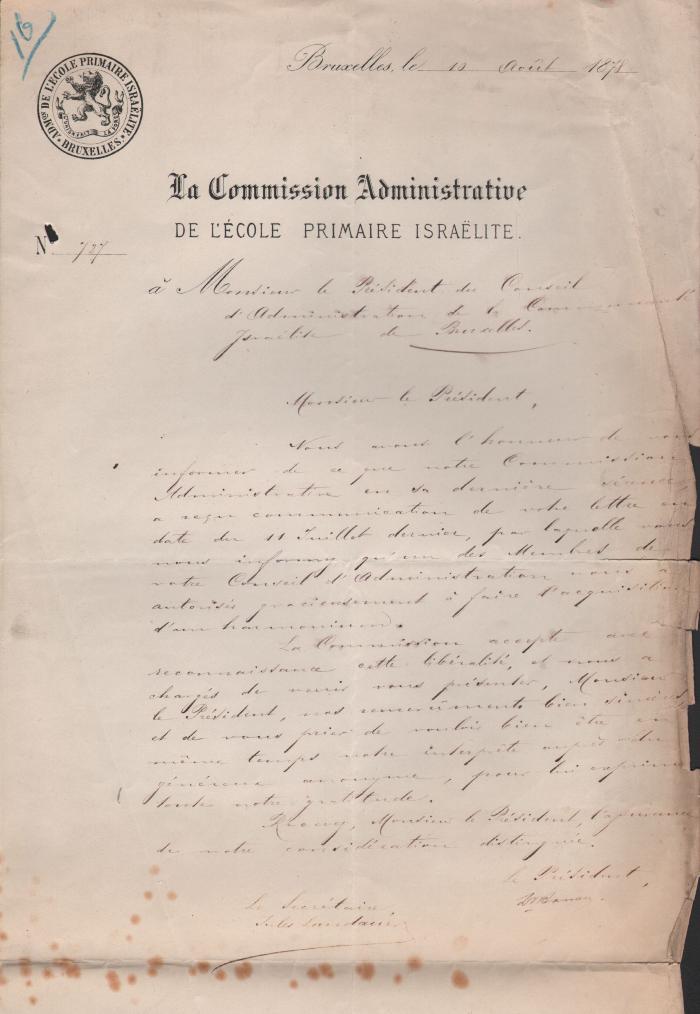 16
Bruxelles, le 12 Août 1878
ADM.ON DE L'ÉCOLE PRIMAIRE ISRAËLITE.
BRUXELLES.
La Commission Administrative
DE L'ÉCOLE PRIMAIRE ISRAËLITE.
N 727
à Monsieur le Président du Conseil
d'Administration de la Communauté
Israélite de Bruxelles.
Monsieur le Président,
Nous avons l'honneur de vous
informer de ce que notre Commission
Administrative en sa dernière séance,
a reçu communication de votre lettre en
date du 11 Juillet dernier, par laquelle vous
nous informez qu'un des Membres de
votre Conseil d'Administration nous a
autorisés gracieusement à faire l'acquisition
d'un harmonium.
La Commission accepte avec
reconnaissance cette libéralité, et nous a
chargés de venir vous présenter, Monsieur
le Président, nos remercîments bien sincères
et de vous prier de vouloir bien être en
même temps notre interprète auprès votre
généreux anonyme, pour lui exprimer
toute notre gratitude.
Recevez, Monsieur le Président, l'assurance
de notre considération distinguée.
Le Président,
Le Secrétaire
Jules Landauer